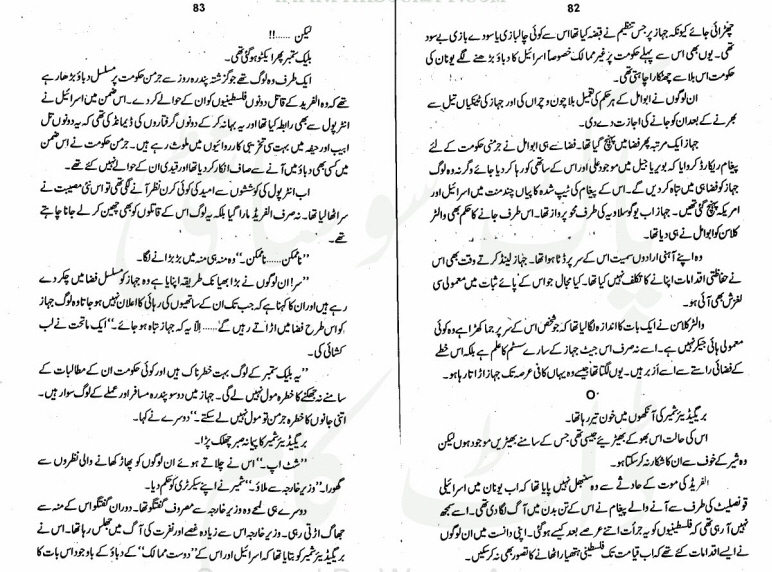 82
چھڑائی جائے کیونکہ جہاز پر جس تنظیم نے قبضہ کیا تھا اس سے کوئی چالبازی یا سودے بازی بے سود
تھی۔ یوں بھی اس سے پہلے حکومت پر غیر ممالک خصوصاً اسرائیل کا دباؤ بڑھنے لگے یونان کی
حکومت اس بلا سے چھٹکارا چاہتی تھی۔
ان لوگوں نے ابوالہل کے ہر حکم کی تعمیل بلا چون و چراں کی اور جہاز کی ٹنکیاں تیل سے
بھرنے کے بعد ان کو جانے کی اجازت دے دی۔
جہاز ایک مرتبہ پھر فضا میں پہنچ گیا تھا۔ فضا سے ہی ابوالہل نے جرمنی حکومت کے لئے
پیغام ریکارڈ کروایا کہ بویریا جیل میں موجود علی اور اس کے ساتھی کو رہا کر دیا جائے وگرنہ وہ لوگ
جہاز کو فضا ہی میں تباہ کر دیں گے۔ اس کے پیغام کی ٹیپ شدہ کاپیاں چند منٹ میں اسرائیل اور
امریکہ پہنچ گئی تھیں۔ جہاز اب یوگوسلاویہ کی طرف محو پرواز تھا۔ اس طرف جانے کا حکم بھی والٹر
کلاسن کو ابوالہل نے ہی دیا تھا۔
وہ اپنے آہنی ارادوں سمیت اس کے سر پر ڈٹا ہوا تھا۔ جہاز لینڈ کرتے وقت بھی اس
نے حفاظتی اقدامات اپنانے کا تکلف نہیں کیا تھا۔ کیا مجال جو اس کے پائے ثبات میں معمولی سی
لغزش بھی آئی ہو۔
والٹر کلاسن نے ایک بات کا اندازہ لگا لیا تھا کہ جو شخص اس کے سر پر جما کھڑا ہے وہ کوئی
معمولی ہائی جیکر نہیں ہے۔ اسے نہ صرف اس جیٹ جہاز کے سارے سسٹم کا علم ہے بلکہ اس خطے
کے فضائی راستے سے اسے ازبر ہیں۔ یوں لگتا تھا جیسے وہ یہاں کافی عرصہ تک جہاز اڑاتا رہا ہو۔
O
بریگیڈیئر شمیر کی آنکھوں میں خون تیر رہا تھا۔
اس کی حالت اس بھوکے بھیڑیئے جیسی تھی جس کے سامنے بھیڑیں موجود ہوں لیکن
وہ شیر کے خوف سے ان کا شکار نہ کر سکتا ہو۔
الفریڈ کی موت کے حادثے سے وہ سنبھل نہیں پایا تھا کہ اب یونان میں اسرائیلی
قونصلیٹ کی طرف سے آنے والے پیغام نے اس کے تن بدن میں آگ لگا دی تھی۔ اسے سمجھ
نہیں آ رہی تھی کہ فلسطینیوں کو یہ جرأت اتنے عرصے بعد کیسے ہو گئی۔ اپنی دانست میں ان لوگوں
نے ایسے اقدامات کئے تھے کہ اب قیامت تک فلسطینی ہتھیار اٹھانے کا تصور بھی نہ کر سکیں۔
83
لیکن ......!!
بلیک ستمبر پھر ایکٹو ہو گئی تھی۔
ایک طرف وہ لوگ تھے جو گزشتہ پندرہ روز سے جرمن حکومت پر مسلسل دباؤ بڑھا رہے
تھے کہ وہ الفریڈ کے قاتل دونوں فلسطینیوں کو ان کے حوالے کر دے۔ اس ضمن میں اسرائیل نے
انٹرپول سے بھی رابطہ کیا تھا اور یہ بہانہ کر کے دونوں گرفتاروں کی ڈیمانڈ کی تھی کہ یہ دونوں تل
ابیب اور حیفہ میں بہت سی تخریبی کارروائیوں میں ملوث رہے ہیں۔ جرمن حکومت نے اس ضمن
میں کسی بھی دباؤ میں آنے سے صاف انکار کر دیا تھا اور قیدی ان کے حوالے نہیں کئے تھے۔
اب انٹرپول کی کوششوں سے امید کی کوئی کرن نظر آنے لگی تھی تو اس نئی مصیبت نے
سر اٹھا لیا تھا۔ نہ صرف الفریڈ مارا گیا بلکہ یہ لوگ اس کے قاتلوں کو بھی چھین کر لے جانا چاہتے
تھے۔
"ناممکن ...... ناممکن۔" وہ منہ ہی منہ میں بڑبڑانے لگا۔
"سر! ان لوگوں نے بڑا بھیانک طریقہ اپنایا ہے وہ جہاز کو مسلسل فضا میں چکر دے
رہے ہیں اور ان کا کہنا ہے کہ جب تک ان کے ساتھیوں کی رہائی کا اعلان نہیں ہو جاتا وہ لوگ جہاز
کو اس طرح فضا میں اڑاتے رہیں گے ...... الا یہ کہ جہاز تباہ ہو جائے۔" ایک ماتحت نے لب
کشائی کی۔
"یہ بلیک ستمبر کے لوگ بہت خطرناک ہیں اور کوئی حکومت ان کے مطالبات کے
سامنے نہ جھکنے کا خطرہ مول نہیں لے گی۔ جہاز میں دو سو پندرہ مسافر اور عملے کے لوگ سوار ہیں۔
اتنی جانوں کا خطرہ جرمن تو مول نہیں لے سکتے۔" دوسرے نے کہا۔
بریگیڈیئر شمیر کا پیمانہ صبر چھلک پڑا۔
"شٹ اپ۔" اس نے چلاتے ہوئے ان لوگوں کو پھاڑ کھانے والی نظروں سے
گھورا۔ "وزیر خارجہ سے ملاؤ۔" شمیر نے اپنے سیکرٹری کو حکم دیا۔
دوسرے ہی لمحے وہ وزیر خارجہ سے مصروف گفتگو تھا۔ دوران گفتگو اس کے منہ سے
جھاگ اڑتی رہی۔ وزیر خارجہ اس سے زیادہ غصے اور نفرت کی آگ میں جھلس رہا تھا۔ اس نے
بریگیڈیئر شمیر کو بتایا تھا کہ اسرائیل اور اس کے "دوست ممالک" کے دباؤ کے باوجود اس بات کا